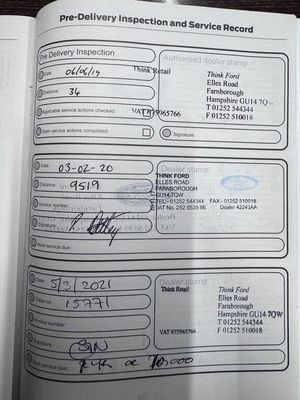 Pre-Delivery Inspection and Service Record
Pre Delivery Inspection
Authorised dealer stamp
Date: 06/06/19
Think Retail
Think Ford
Elles Road
Farnborough
Hampshire GU14 7Q
T 01252 544344
F 01252 510018
Distance: 34
Applicable service actions checked:
VAT 675965766
Open service actions completed:
Signature:
Date: 03-02-20
Dealer stamp
THINK FORD
ELLES ROAD
FARNBOROUGH
GU14 7QW
TEL:- 01252 544344 FAX:- 01252 510018
VAT No. 252 8539 86 Dealer 42243AA
Distance: 9519
Invoice number:
Signature:
Next service due:
Date: 5/3/2021
Dealer stamp
Think Retail
Think Ford
Elles Road
Farnborough
Hampshire GU14 7QW
T 01252 544344
F 01252 510018
VAT 675965766
Distance: 15771
Invoice number:
Signature:
Next service due: